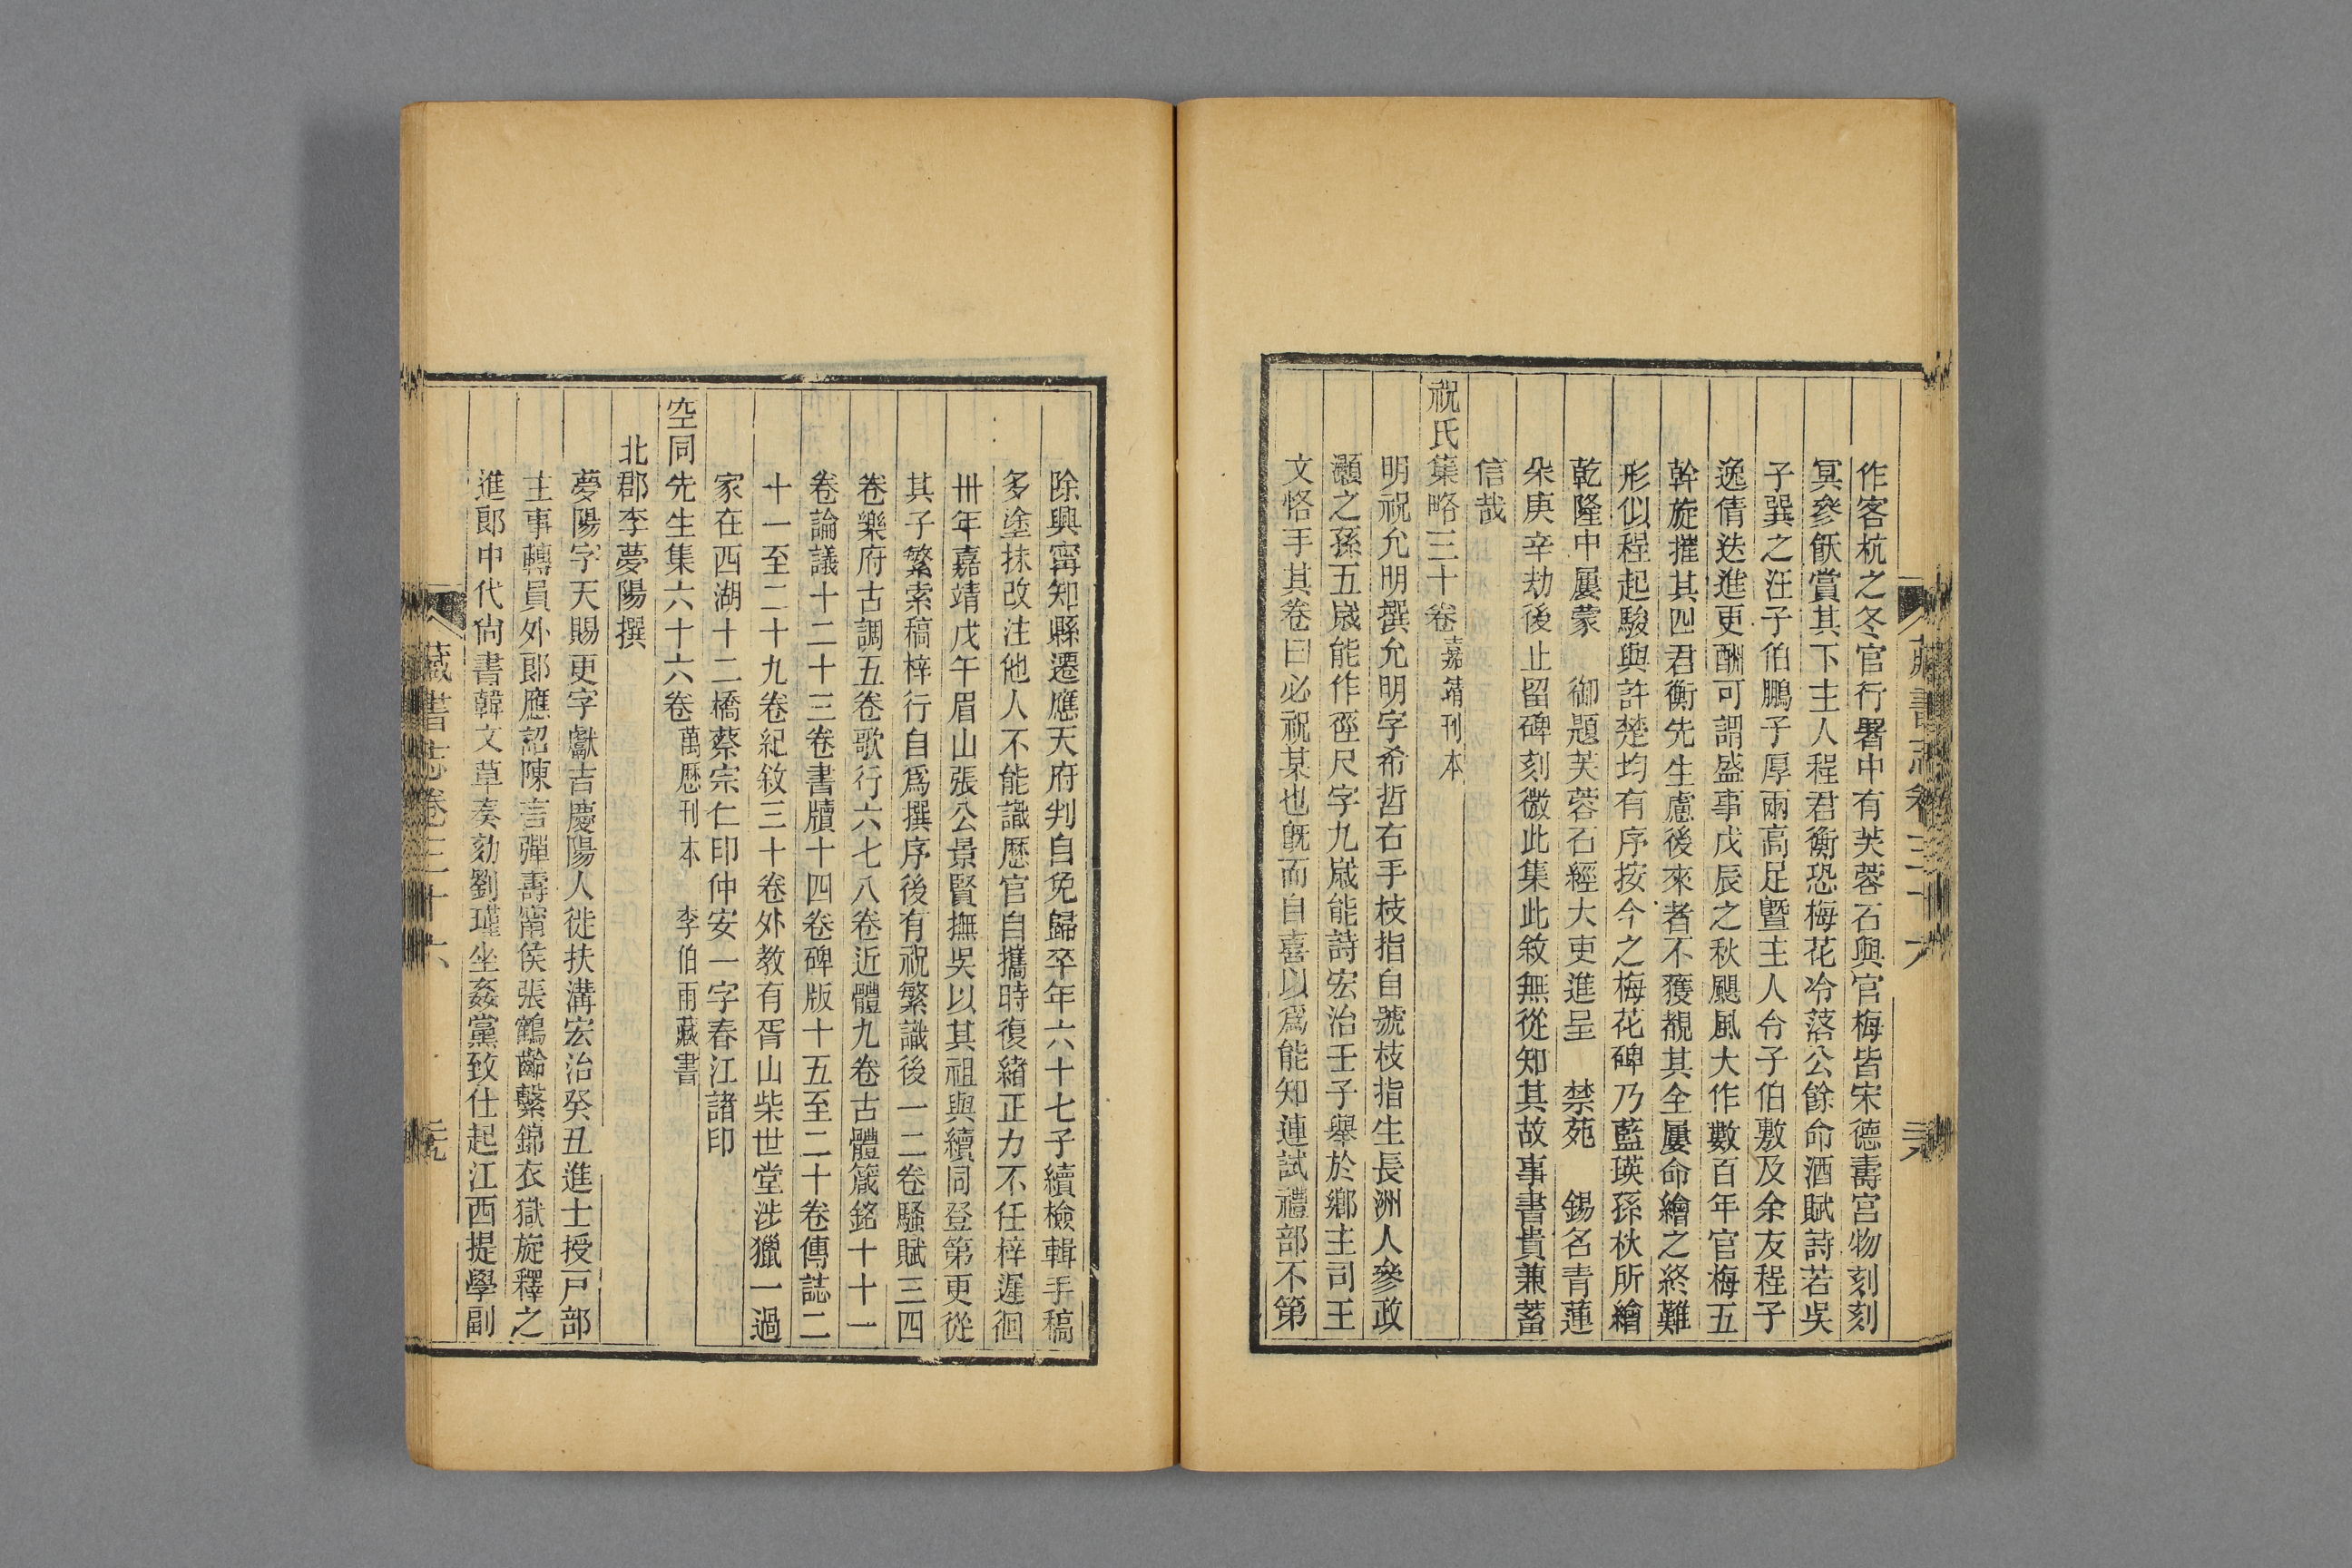 藏書志卷三十六
作客杭之冬官行署中有芙蓉石與官梅皆宋德壽宮物刻刻
冥參飫賞其下主人程君衡恐梅花冷落公餘命酒賦詩若吳
子巽之汪子伯鵬子厚兩高足曁主人令子伯敷及余友程子
逸倩迭進更酬可謂盛事戊辰之秋颶風大作數百年官梅五
幹旋摧其四君衡先生慮後來者不獲覩其全屢命繪之終難
形似程起駿與許楚均有序按今之梅花碑乃藍瑛孫杕所繪
乾隆中屢蒙　御題芙蓉石經大吏進呈　禁苑　錫名青蓮
朵庚辛劫後止留碑刻微此集此敘無從知其故事書貴兼蓄
信哉
祝氏集略三十卷嘉靖刊本
明祝允明撰允明字希哲右手枝指自號枝指生長洲人參政
灝之孫五歲能作徑尺字九歲能詩宏治壬子舉於鄉主司王
文恪手其卷曰必祝某也旣而自喜以爲能知連試禮部不第
除興甯知縣遷應天府判自免歸卒年六十七子續檢輯手稿
多塗抹改注他人不能識歷官自攜時復緒正力不任梓遲徊
卅年嘉靖戊午眉山張公景賢撫吳以其祖與續同登第更從
其子繁索稿梓行自爲撰序後有祝繁識後一二卷騷賦三四
卷樂府古調五卷歌行六七八卷近體九卷古體箴銘十十一
卷論議十二十三卷書牘十四卷碑版十五至二十卷傳誌二
十一至二十九卷紀敘三十卷外教有胥山柴世堂涉獵一過
家在西湖十二橋蔡宗仁印仲安一字春江諸印
空同先生集六十六卷萬歷刊本　李伯雨藏書
北郡李夢陽撰
夢陽字天賜更字獻吉慶陽人徙扶溝宏治癸丑進士授戸部
主事轉員外郎應詔陳言彈壽甯侯張鶴齡繫錦衣獄旋釋之
進郎中代尙書韓文草奏劾劉瑾坐姦黨致仕起江西提學副
藏書志卷三十六